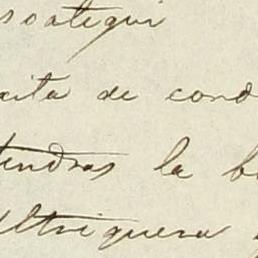 soategui
cita de cond
tendras la b
Ultriguera y